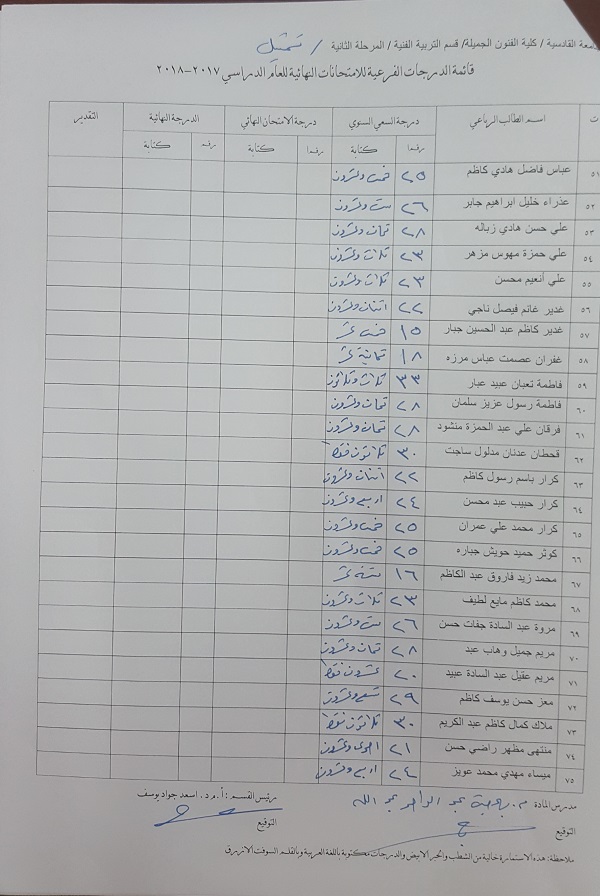 جامعة القادسية / كلية الفنون الجميلة / قسم التربية الفنية / المرحلة الثانية / تمثيل
قائمة الدرجات الفرعية للامتحانات النهائية للعام الدراسي ٢٠١٧-٢٠١٨
ت اسم الطالب الرباعي درجة السعي السنوي درجة الامتحان النهائي الدرجة النهائية التقدير
رقما كتابة رقما كتابة رقم كتابة
٥١ عباس فاضل هادي كاظم ٢٥ خمس وعشرون
٥٢ عذراء خليل ابراهيم جابر ٢٦ ست وعشرون
٥٣ علي حسن هادي زباله ٢٨ ثمان وعشرون
٥٤ علي حمزة مهوس مزهر ٢٣ ثلاث وعشرون
٥٥ علي أنعيم محسن ٢٣ ثلاث وعشرون
٥٦ غدير غانم فيصل ناجي ٢٢ اثنان وعشرون
٥٧ غدير كاظم عبد الحسين جبار ١٥ خمس عشر
٥٨ غفران عصمت عباس مرزه ١٨ ثمانية عشر
٥٩ فاطمة تعبان عبيد عبار ٣٣ ثلاث وثلاثون
٦٠ فاطمة رسول عزيز سلمان ٢٨ ثمان وعشرون
٦١ فرقان علي عبد الحمزة منشود ٢٨ ثمان وعشرون
٦٢ قحطان عدنان مدلول ساجت ٣٠ ثلاثون فقط
٦٣ كرار باسم رسول كاظم ٢٢ اثنان وعشرون
٦٤ كرار حبيب عبد محسن ٢٤ اربع وعشرون
٦٥ كرار محمد علي عمران ٢٥ خمس وعشرون
٦٦ كوثر حميد حويش جباره ٢٥ خمس وعشرون
٦٧ محمد زيد فاروق عبد الكاظم ١٦ ستة عشر
٦٨ محمد كاظم مايع لطيف ٢٣ ثلاث وعشرون
٦٩ مروة عبد السادة جفات حسن ٢٦ ست وعشرون
٧٠ مريم جميل وهاب عبد ٢٨ ثمان وعشرون
٧١ مريم عقيل عبد السادة عبيد ٢٠ عشرون فقط
٧٢ معز حسن يوسف كاظم ٢٩ تسع وعشرون
٧٣ ملاك كمال كاظم عبد الكريم ٣٠ ثلاثون فقط
٧٤ منتهى مظهر راضي حسن ٢١ احدى وعشرون
٧٥ ميساء مهدي محمد عويز ٢٤ اربع وعشرون
مدرس المادة م. عبد الواحد عبد الله
رئيس القسم: أ.م.د. اسعد جواد يوسف
التوقيع
التوقيع
ملاحظة: هذه الاستمارة خالية من الشطب والحبر الابيض والدرجات مكتوبة باللغة العربية وبالقلم السوفت الازرق